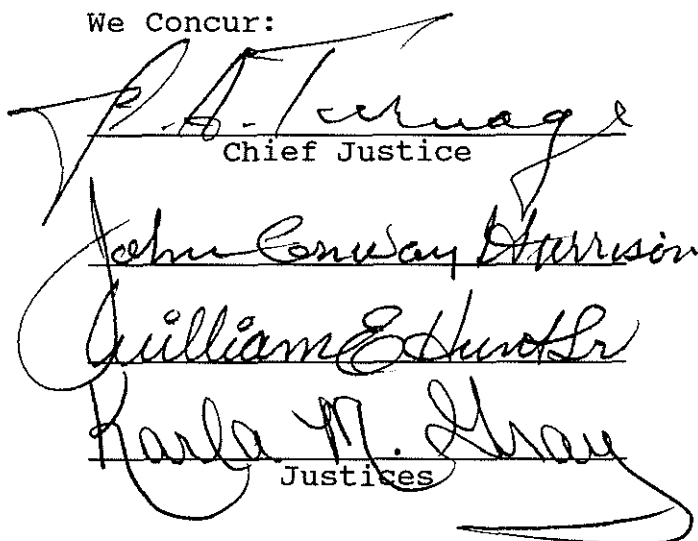 We Concur:
J. A. Turnage
Chief Justice
John Conway Harrison
William E Hunt Sr
Karla M. Gray
Justices